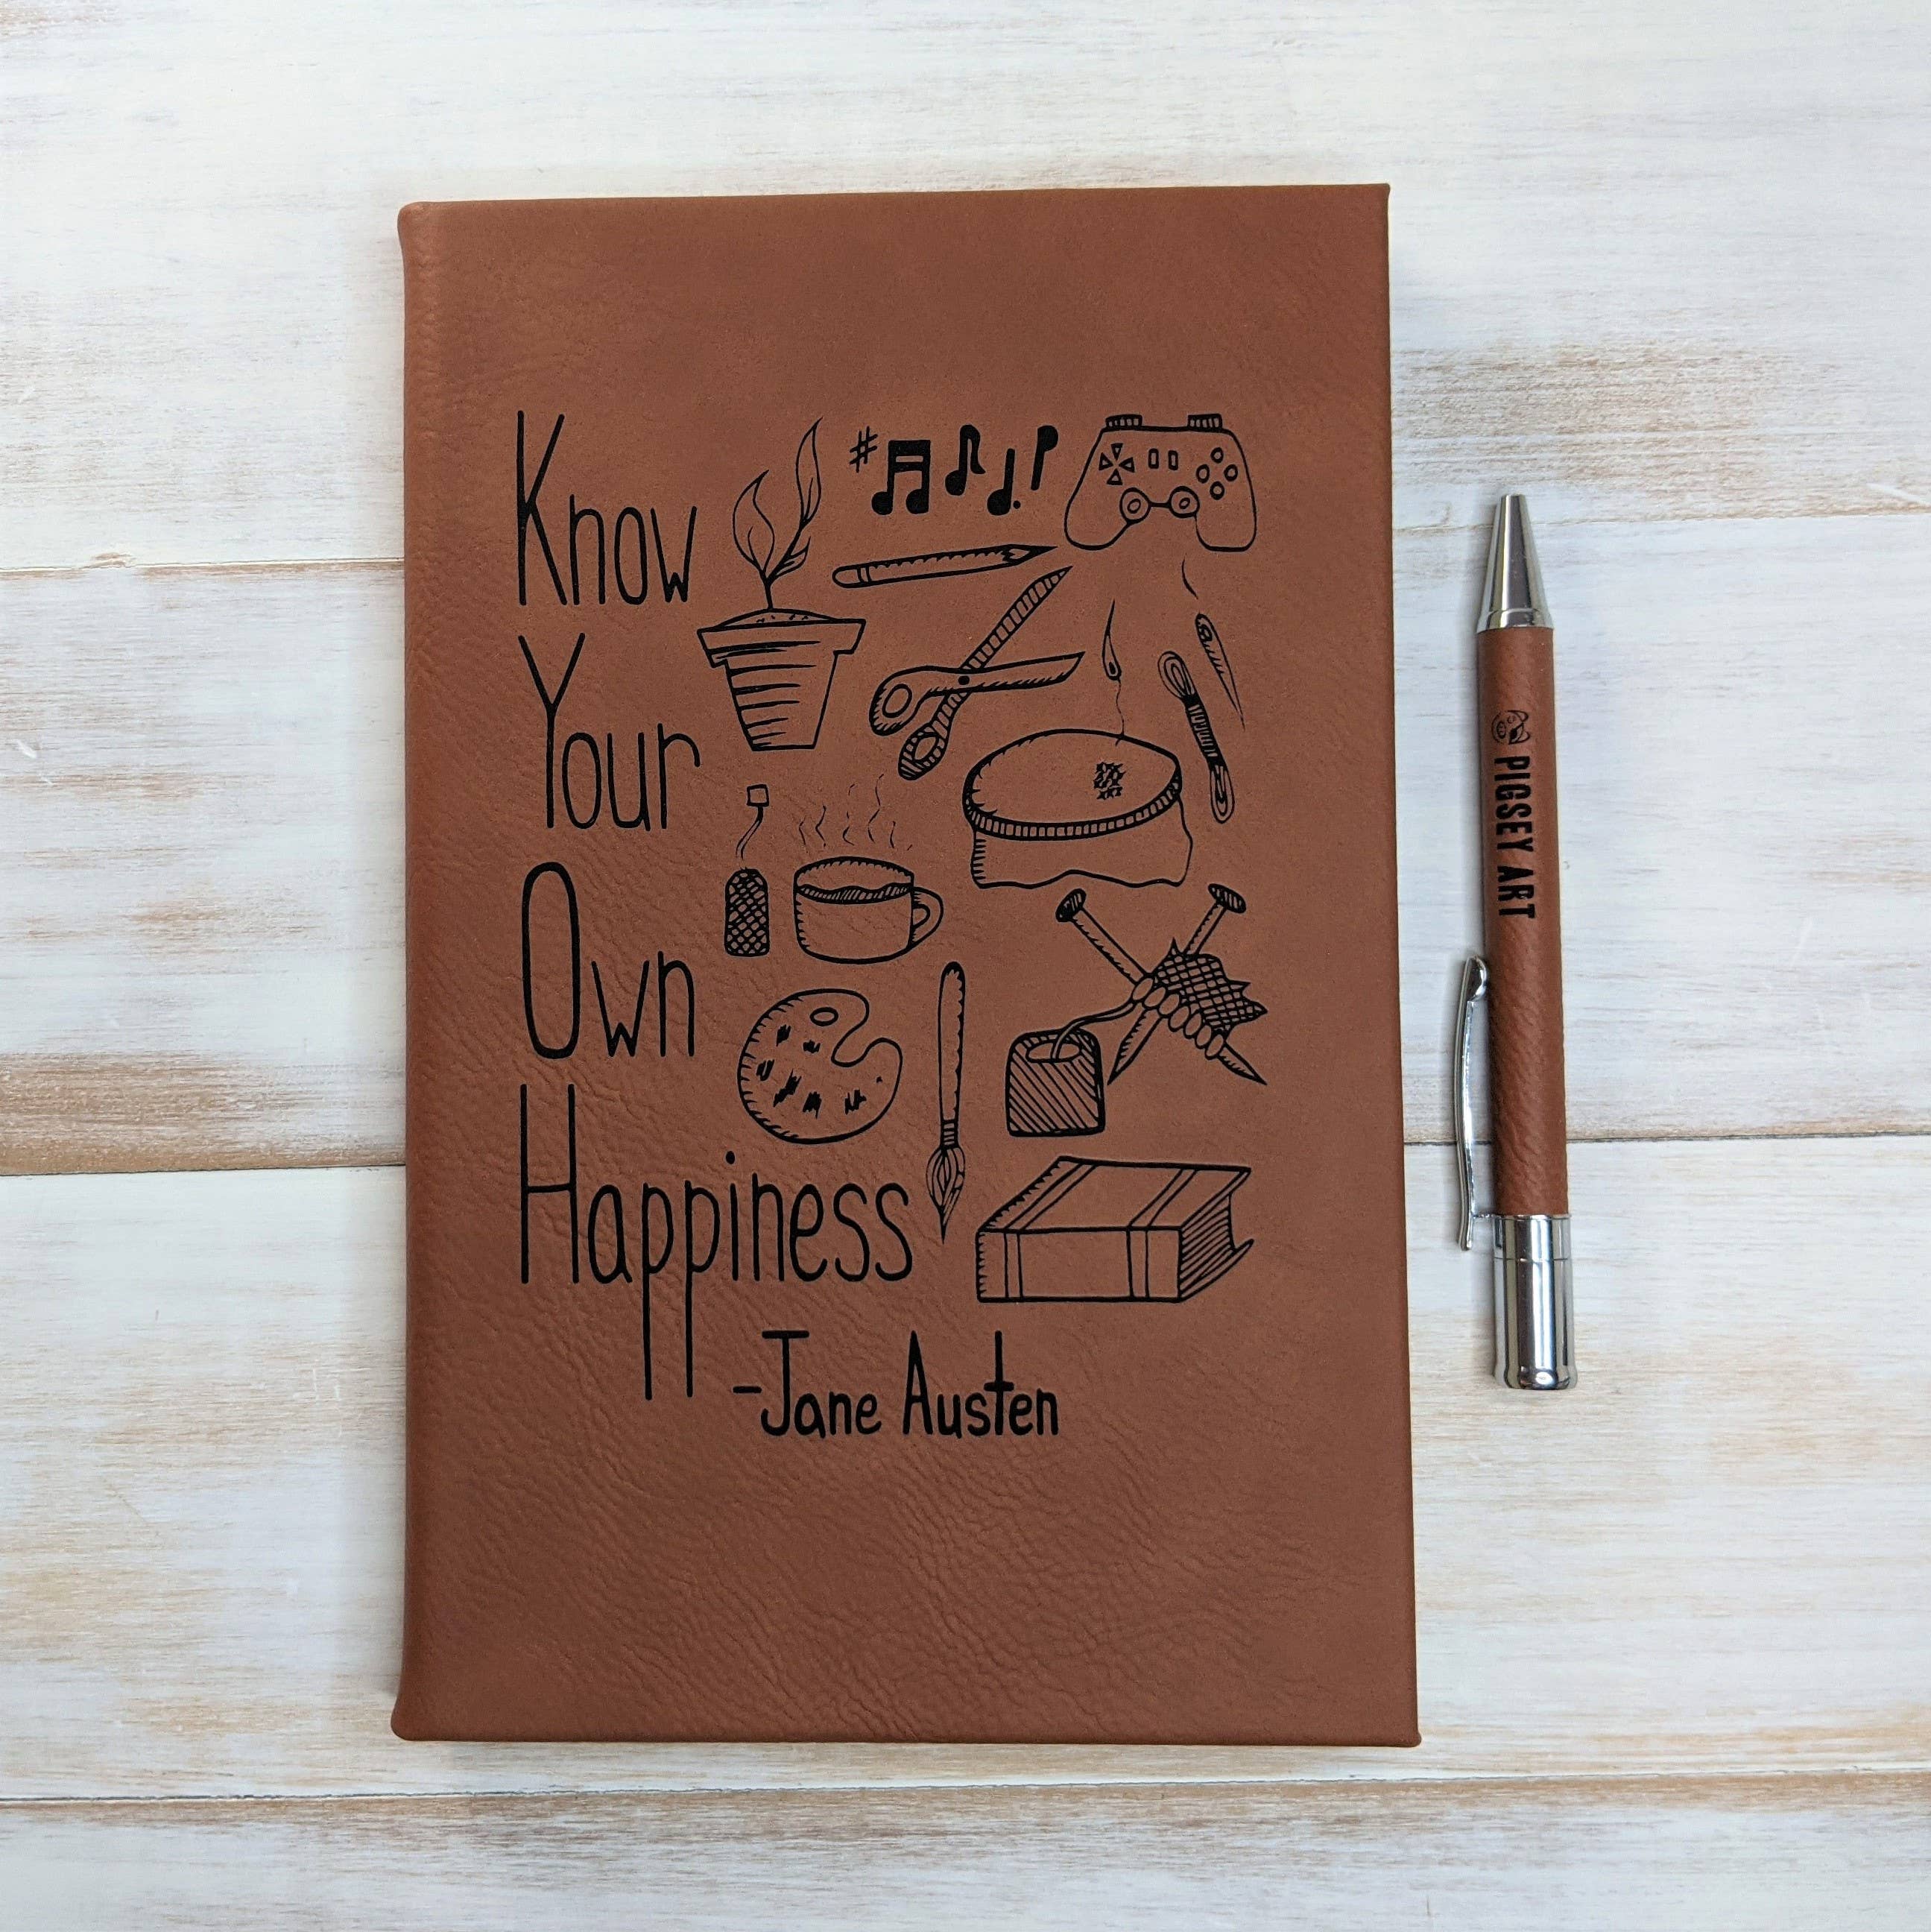 Know
Your
Own
Happiness
-Jane Austen
PIGSEY ART